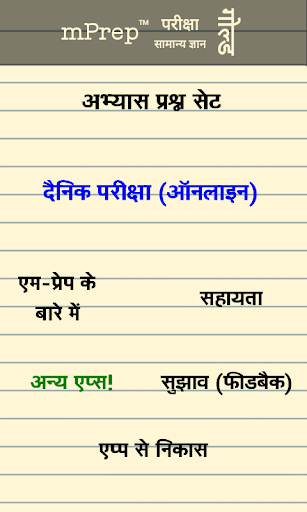 mPrep™ परीक्षा
सामान्य ज्ञान
गोल्ड
अभ्यास प्रश्न सेट
दैनिक परीक्षा (ऑनलाइन)
एम-प्रेप के
बारे में
सहायता
अन्य एप्स!
सुझाव (फीडबैक)
एप्प से निकास